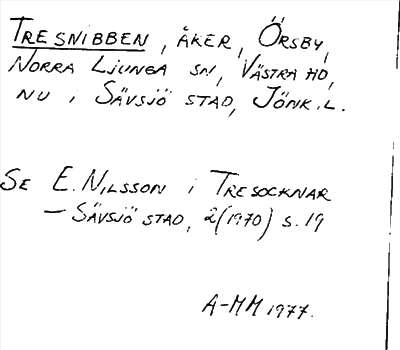 TRESNIBBEN, ÅKER, ÖRSBY,
NORRA LJUNGA SN, VÄSTRA HD,
NU I SÄVSJÖ STAD, JÖNK. L.
SE E. NILSSON I TRESOCKNAR
– SÄVSJÖ STAD, 2(1970) S. 19
A-MM 1977.